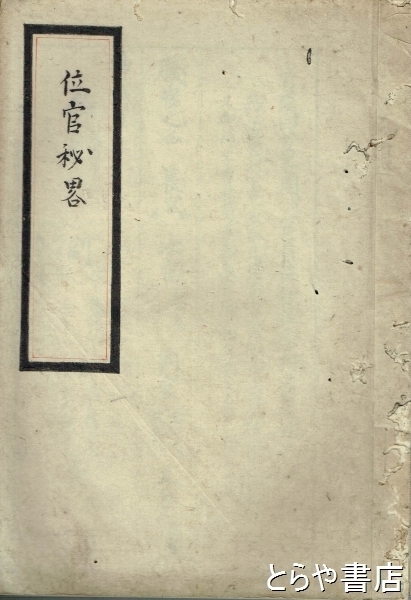 位官秘畧
とらや書店